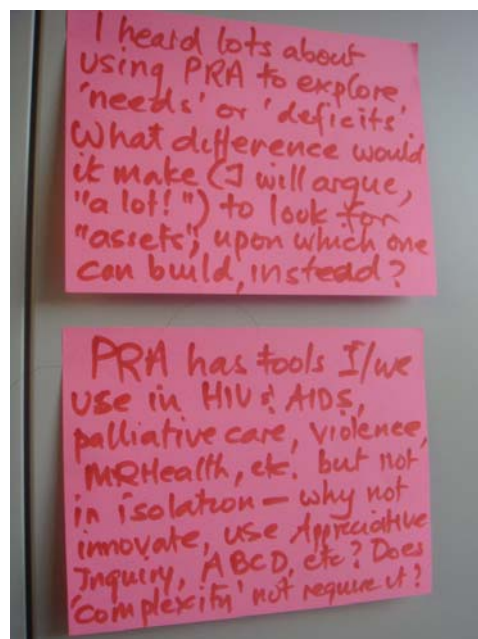 I heard lots about
using PRA to explore
'needs' or 'deficits'.
What difference would
it make (I will argue,
"a lot!") to look for
"assets", upon which one
can build, instead?
PRA has tools I/we
use in HIV & AIDS,
palliative care, violence,
MRHealth, etc. but not
in isolation — why not
innovate, use Appreciative
Inquiry, ABCD, etc? Does
'complexity' not require it?